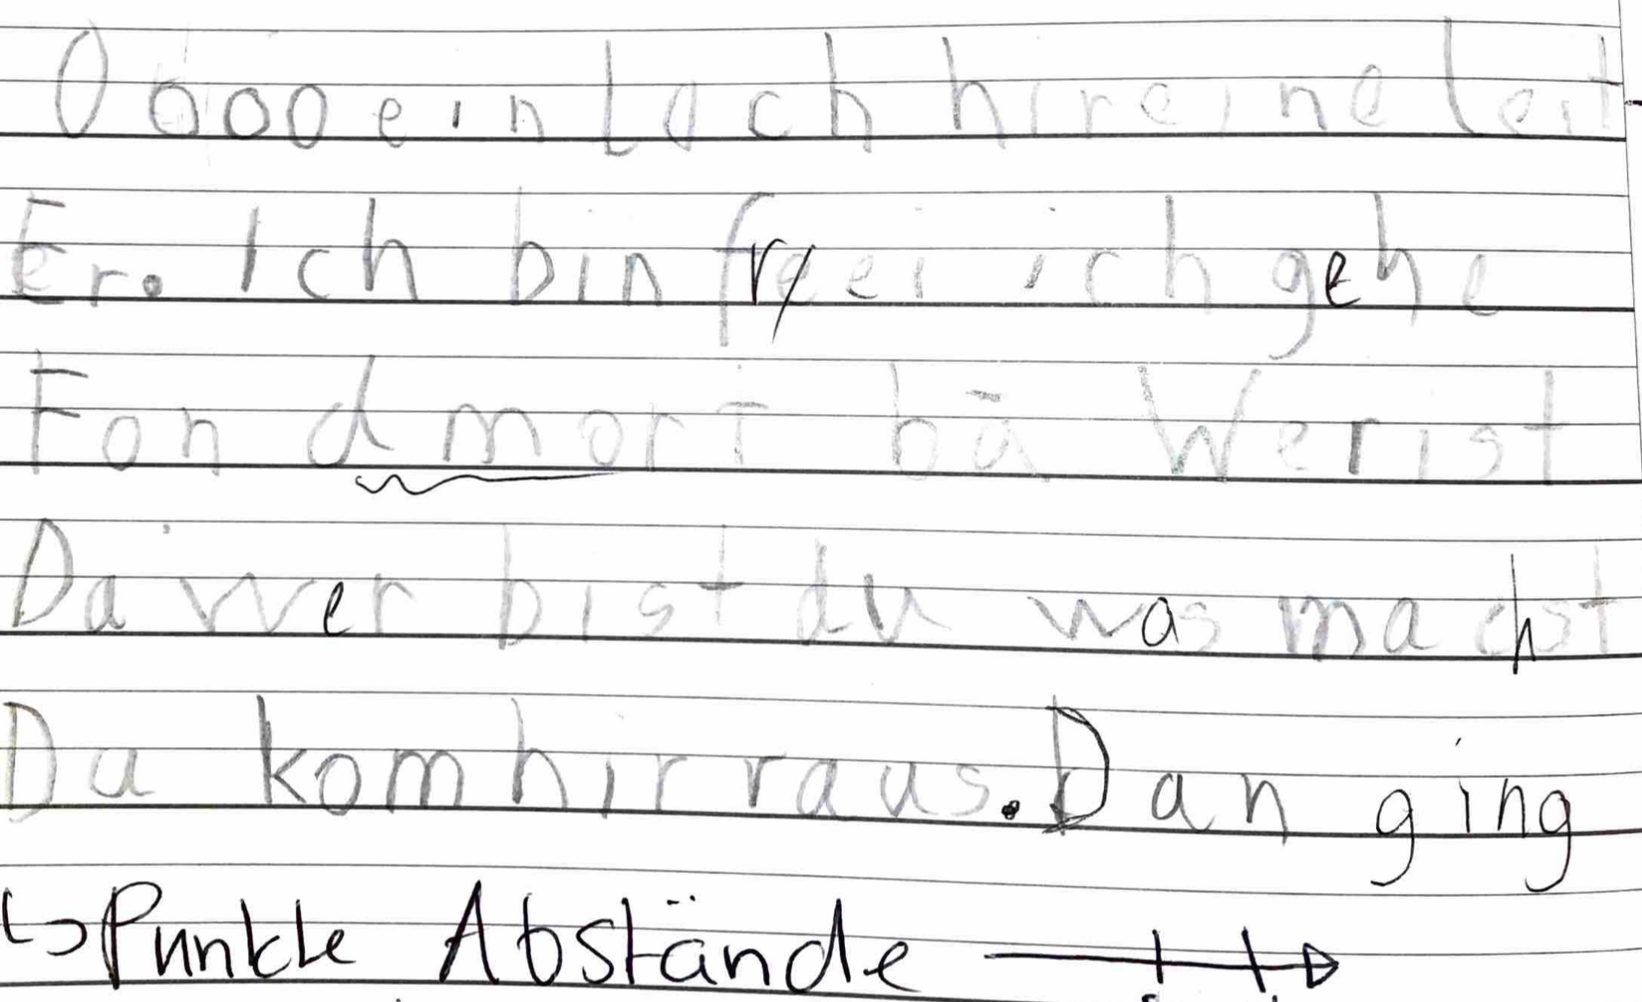 Oooo ein Loch hir eine leit
Er. Ich bin frei ich gehe
Fon dmort bä Wer ist
Da wer bist du was machst
Da kom hir raus. Dan ging
↳ Punkte Abstände